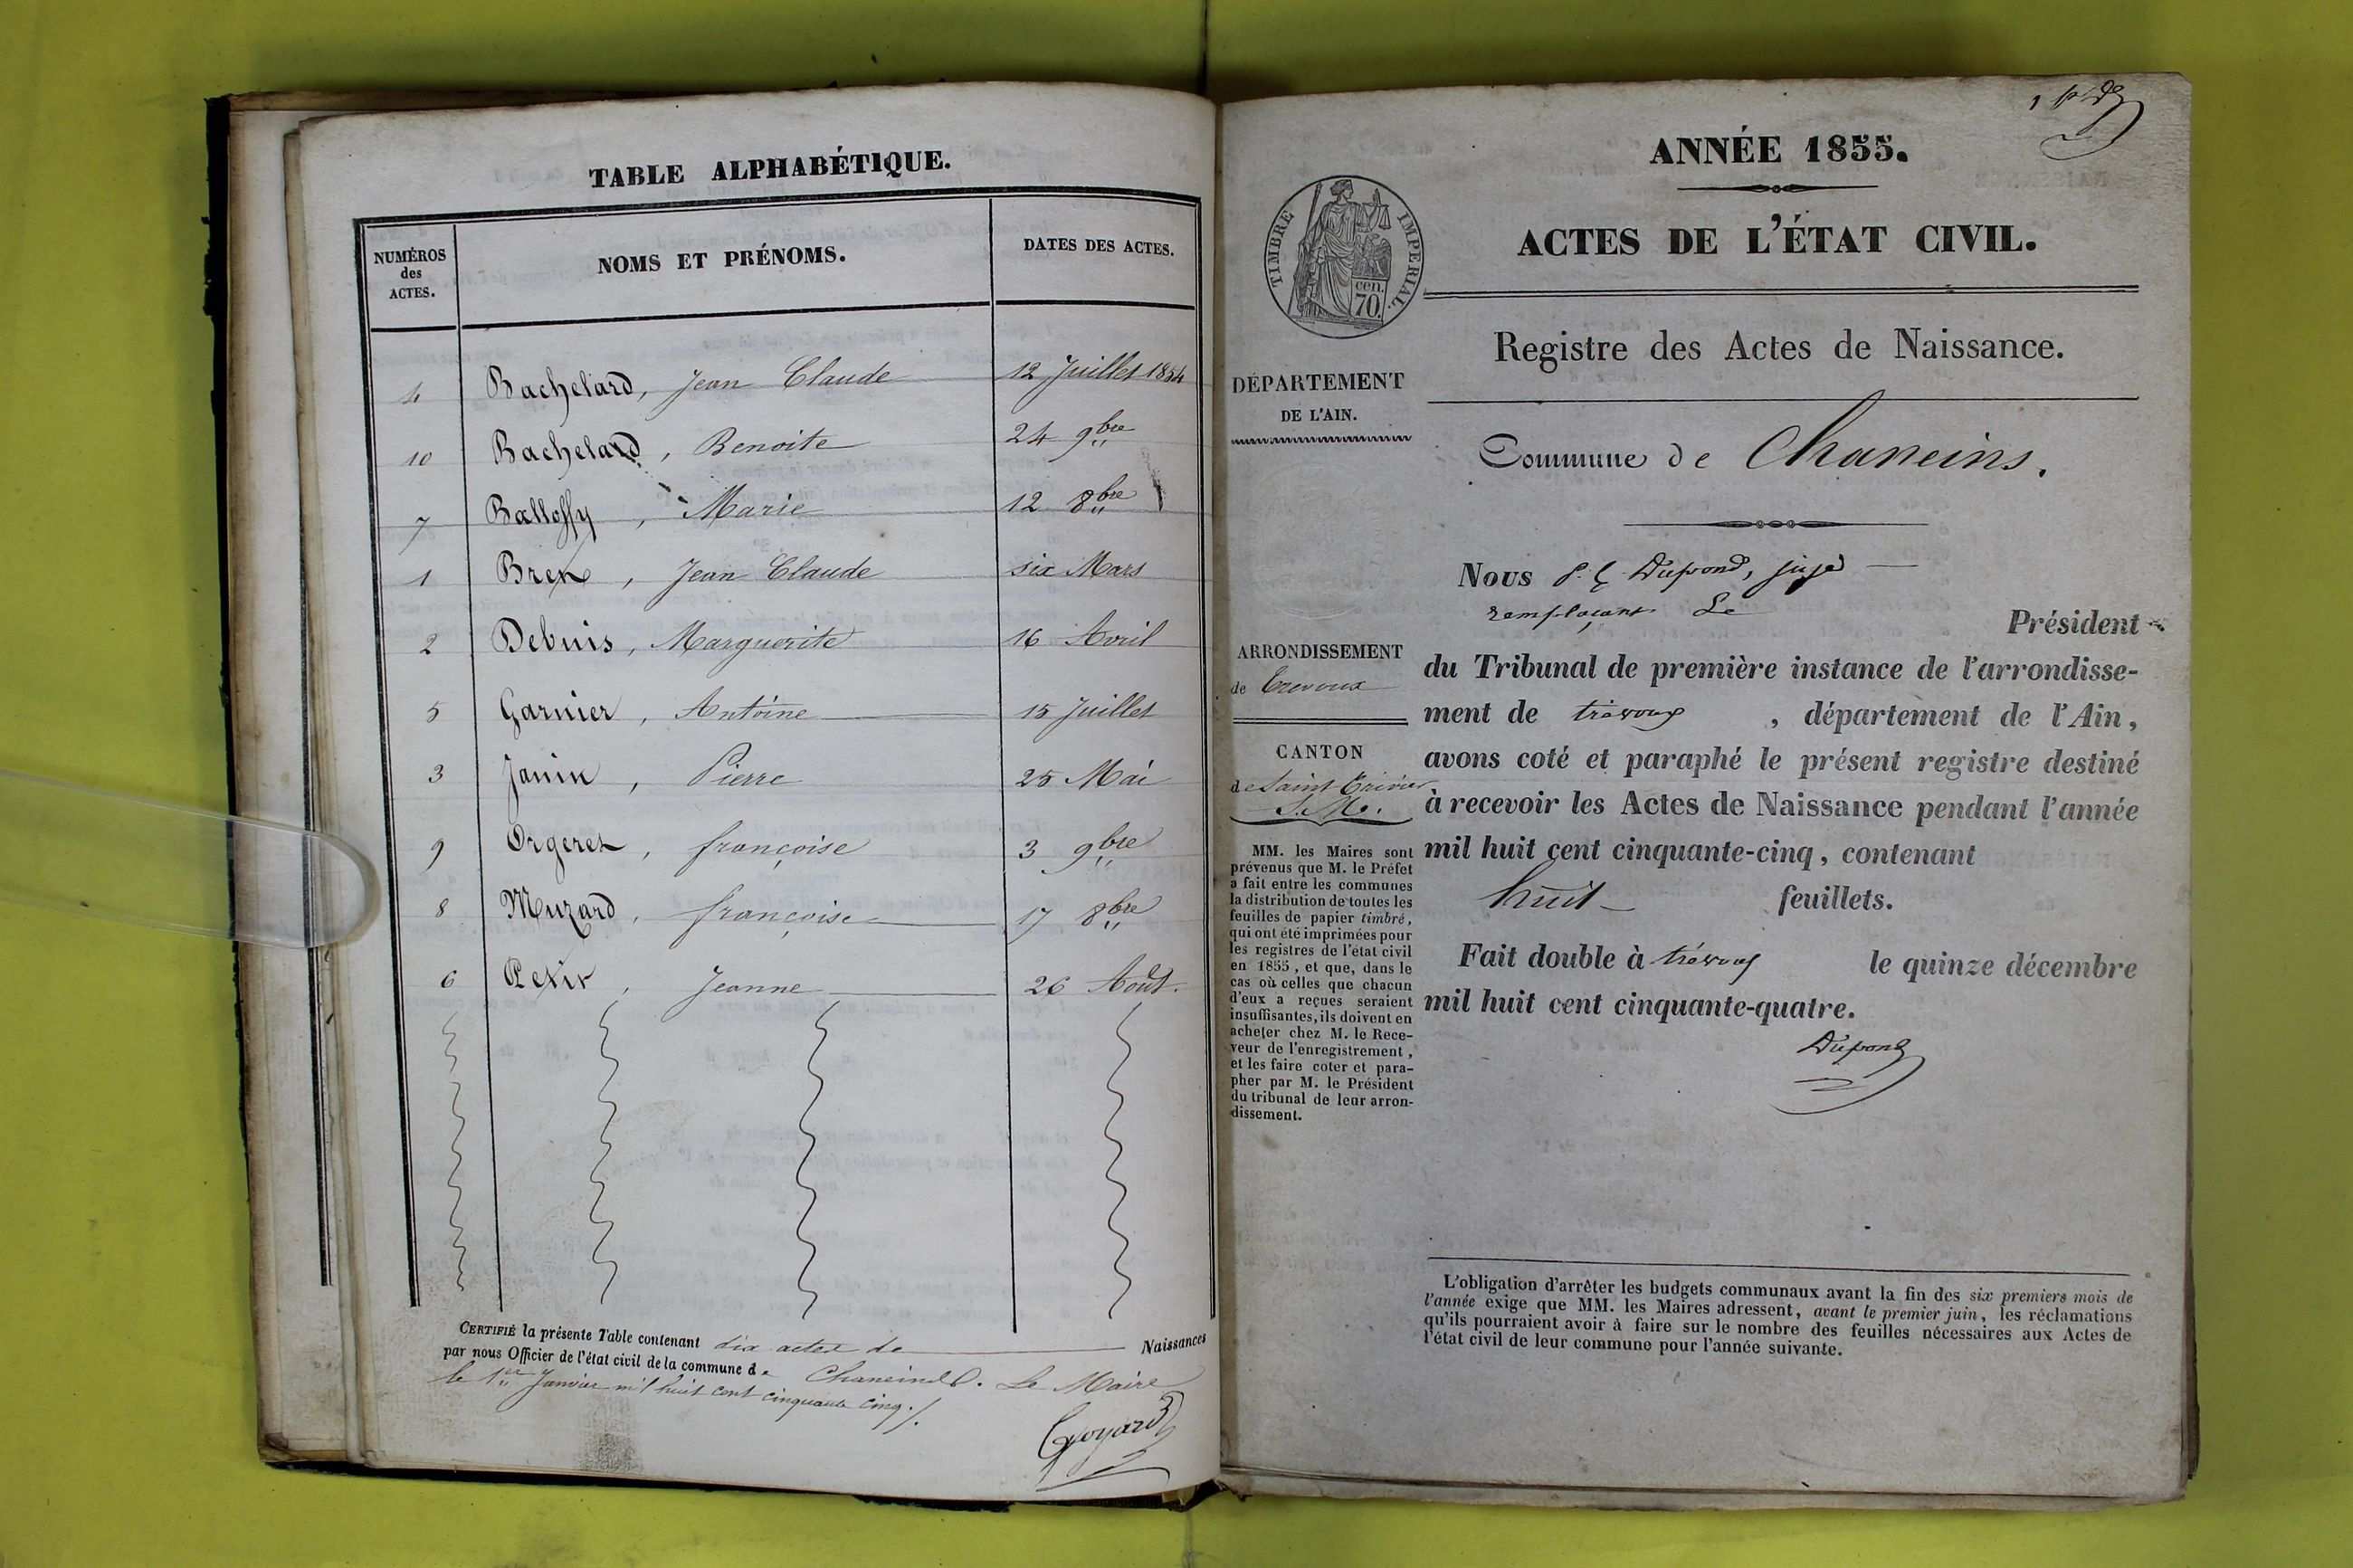 TABLE ALPHABÉTIQUE.
NUMÉROS des ACTES.
NOMS ET PRÉNOMS.
DATES DES ACTES.
4 Bachelard, Jean Claude 12 Juillet 1854
10 Bachelard, Benoite 24 9bre
7 Balloffy, Marie 12 8bre
1 Brex, Jean Claude six Mars
2 Debuis, Marguerite 16 Avril
5 Garnier, Antoine 15 Juillet
3 Janin, Pierre 25 Mai
9 Orgeret, françoise 3 9bre
8 Muzard, françoise 17 8bre
6 Petit, Jeanne 26 Août.
CERTIFIÉ la présente Table contenant dix actes de Naissances
par nous Officier de l'état civil de la commune de Chaneins. Le Maire
le 1er Janvier mil huit cent cinquante cinq./.
Goyard
ANNÉE 1855.
ACTES DE L'ÉTAT CIVIL.
TIMBRE IMPERIAL.
cen.
70.
Registre des Actes de Naissance.
DÉPARTEMENT
DE L'AIN.
Commune de Chaneins.
ARRONDISSEMENT
de Trevoux
CANTON
de Saint Trivier
S. M.
MM. les Maires sont
prévenus que M. le Préfet
a fait entre les communes
la distribution de toutes les
feuilles de papier timbré,
qui ont été imprimées pour
les registres de l'état civil
en 1855, et que, dans le
cas où celles que chacun
d'eux a reçues seraient
insuffisantes, ils doivent en
acheter chez M. le Rece-
veur de l'enregistrement,
et les faire coter et para-
pher par M. le Président
du tribunal de leur arron-
dissement.
Nous Dupond, juge
remplaçant Le Président
du Tribunal de première instance de l'arrondisse-
ment de trévoux, département de l'Ain,
avons coté et paraphé le présent registre destiné
à recevoir les Actes de Naissance pendant l'année
mil huit cent cinquante-cinq, contenant
huit feuillets.
Fait double à trévoux le quinze décembre
mil huit cent cinquante-quatre.
Dupond
L'obligation d'arrêter les budgets communaux avant la fin des six premiers mois de
l'année exige que MM. les Maires adressent, avant le premier juin, les réclamations
qu'ils pourraient avoir à faire sur le nombre des feuilles nécessaires aux Actes de
l'état civil de leur commune pour l'année suivante.